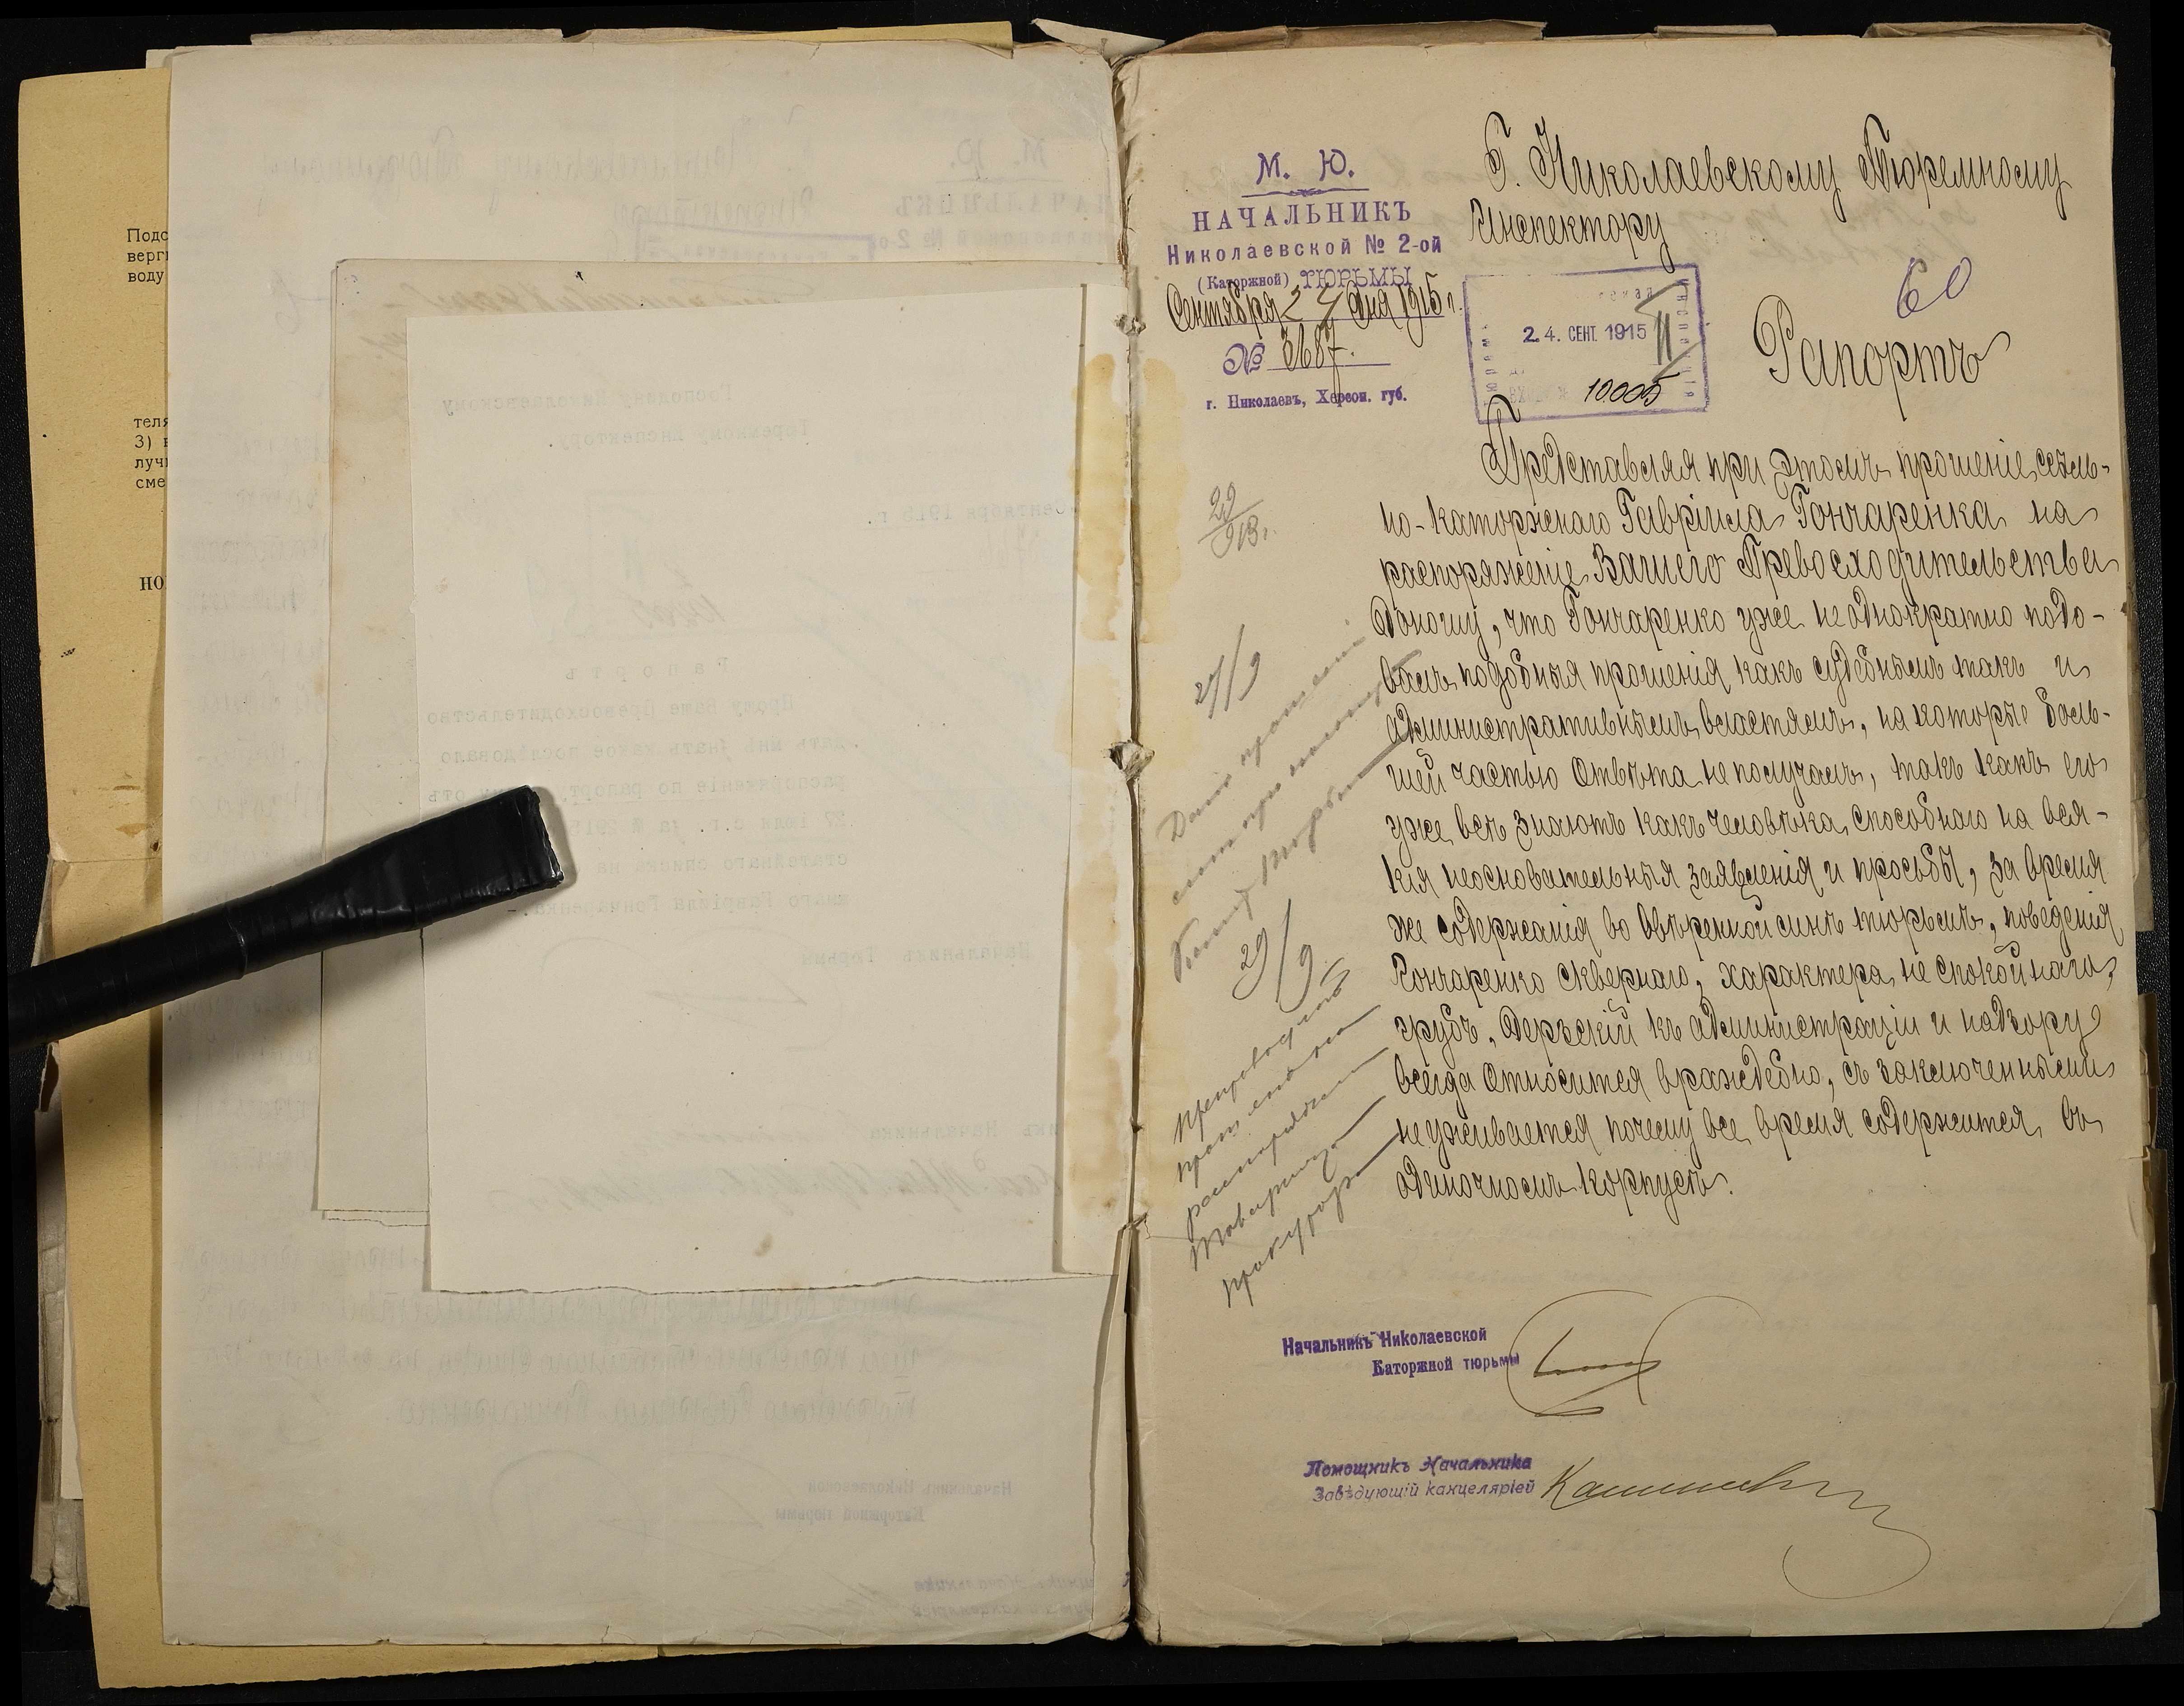 Подс
верг
воду
теля
3)
лучи
сме
НО
М. Ю.
НАЧАЛЬНИКЪ
Николаевской № 2-ой
(Каторжной) ТЮРЬМЫ
Сентября 24 дня 1915 г.
№ 3687.
г. Николаевъ, Херсон. губ.
Г. Николаевскому Тюремному
Инспектору
24. СЕН. 1915
10005
60
Рапортъ
Представляя при этомъ прошеніе ссыль-
но-каторжнаго Гавріила Гончаренка на
распоряженіе Вашего Превосходительства
доношу, что Гончаренко уже неоднократно подо-
валъ подобныя прошенія какъ судебнымъ такъ и
административнымъ властямъ, на которые боль-
шей частью отвѣта не получалъ, такъ какъ его
уже всѣ знаютъ какъ человѣка способнаго на вся-
кія неосновательныя заявленія и просьбы, за время
же содержанія во ввѣренной мнѣ тюрьмѣ, поведенія
Гончаренко сквернаго, характера не спокойнаго,
грубъ, дерзскій къ администраціи и надзору
всегда относится враждебно, съ заключенными
не уживается почему все время содержится въ
одиночномъ корпусѣ.
27/9
29/9
Препроводить
прошеніе на
распоряженіе
Товарища
прокурора
Начальникъ Николаевской
Каторжной тюрьмы
Помощникъ Начальника
Завѣдующій канцеляріей
Господину Николаевскому
Тюремному Инспектору.
Сентября 1915 г.
Рапортъ
Прошу Ваше Превосходительство
дать мнѣ знать какое послѣдовало
распоряженіе по рапорту отъ
27 іюля с.г. за № 2915
статейнаго списка на
жнаго Гавріила Гончаренка.-
Начальникъ Тюрьмы